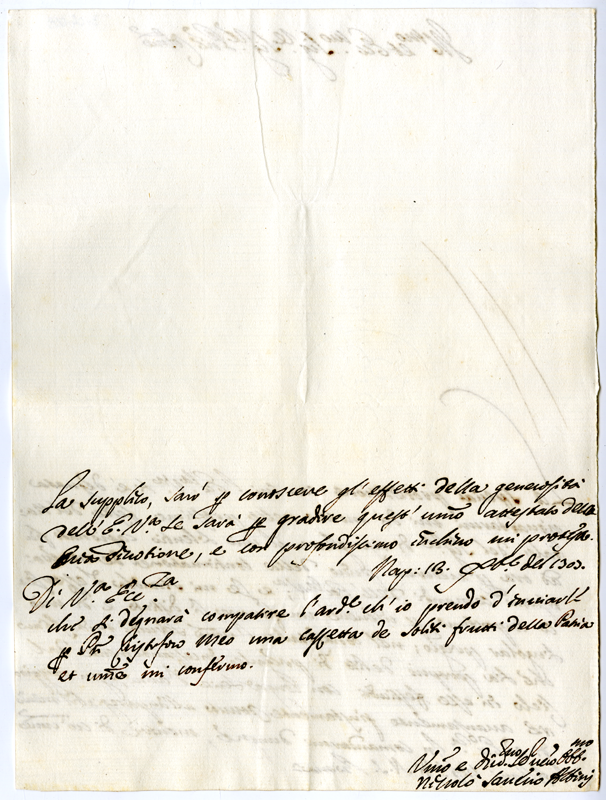 La supplico, sarò p conoscere gl'effetti della generosità
dell'E. Vra. Le sarà p gradire quest'umo attestato della
mia divotione, e con profondissimo inchino mi protesto.
Nap: 13. Xbre del 1303.
Di Vra. Ecc.za
che si degnarà compatire l'ard.e ch'io prendo d'inviarle
p Pn Cristofaro Meo una cassetta de soliti frutti della Patria
et umte mi confermo.
Umo e divmo Obb.mo
Nicolò Albini